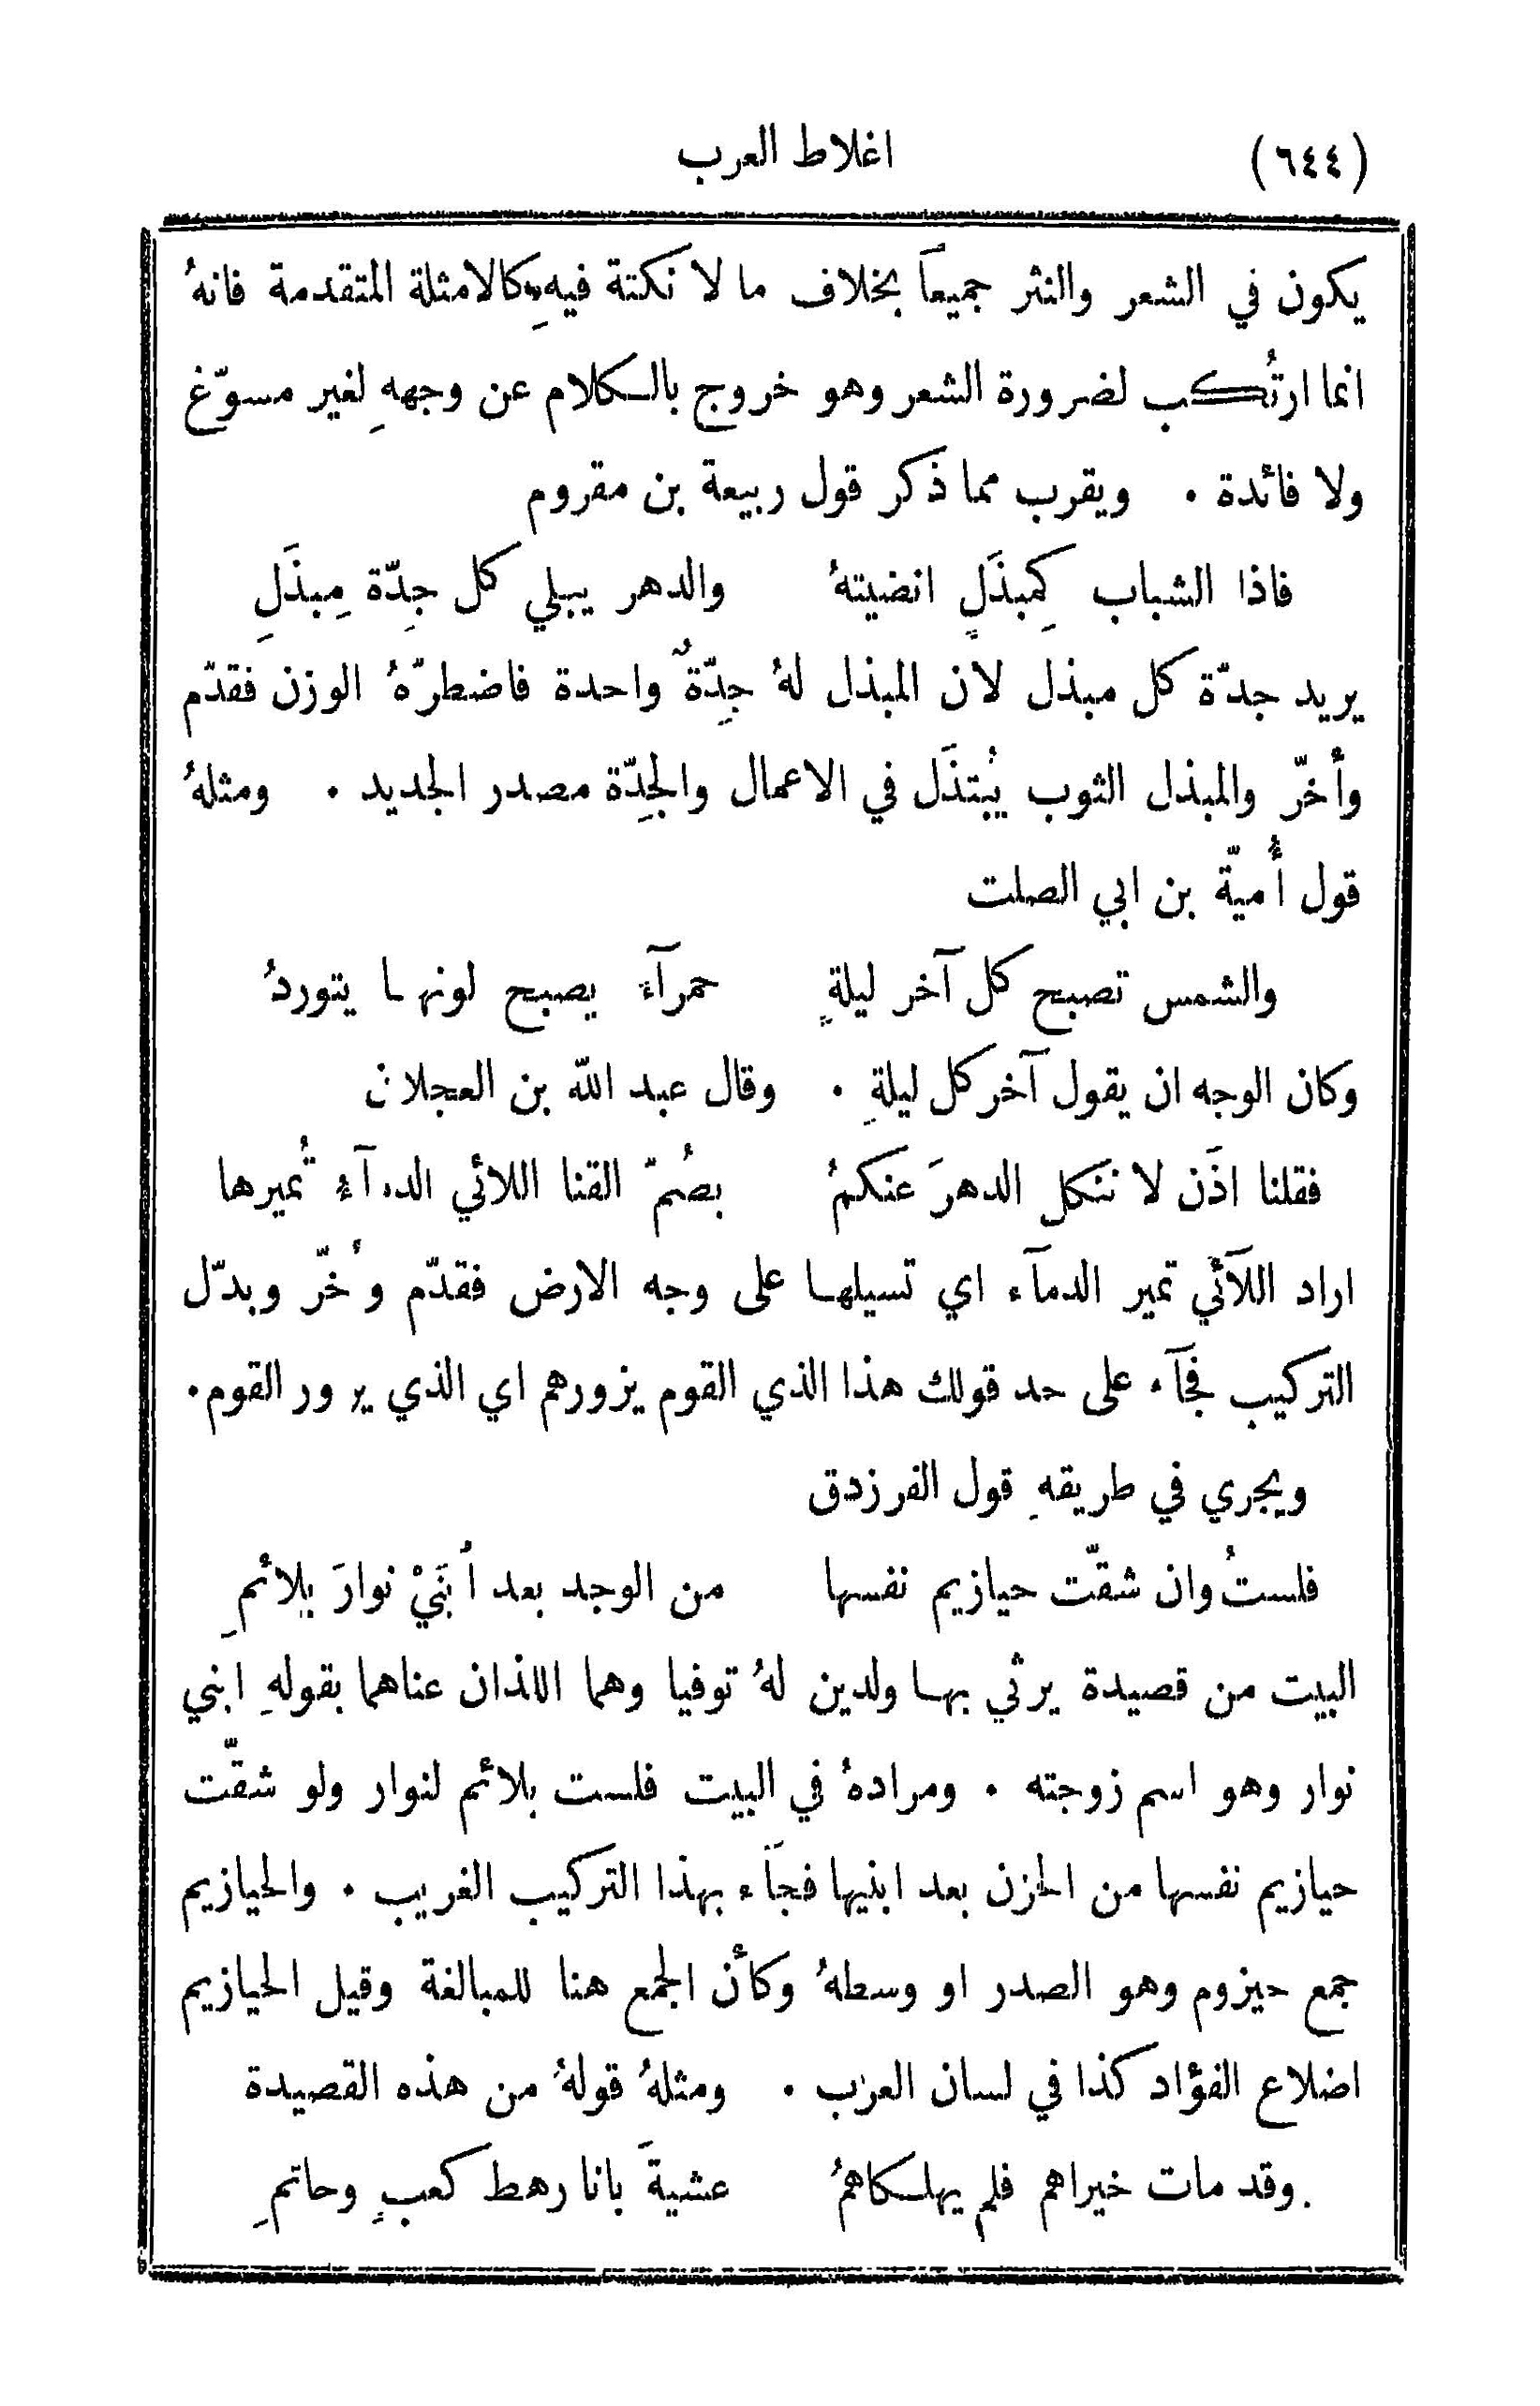 (٦٤٤) اغلاط العرب
يكون في الشعر والنثر جميعاً بخلاف ما لا نكتة فيهِ كالامثلة المتقدمة فانهُ
انما ارتُكب لضرورة الشعر وهو خروج بالكلام عن وجههِ لغير مسوّغ
ولا فائدة . ويقرب مما ذكر قول ربيعة بن مقروم
فاذا الشباب كمِبذَلٍ انضيتهُ والدهر يبلي كل جِدّة مِبذَلِ
يريد جدّة كل مبذل لان المبذل لهُ جِدّةٌ واحدة فاضطرّهُ الوزن فقدّم
وأخّر والمبذل الثوب يُبتذَل في الاعمال والجِدّة مصدر الجديد . ومثلهُ
قول أُميّة بن ابي الصلت
والشمس تصبح كل آخر ليلةٍ حمرآء يصبح لونها يتوردُ
وكان الوجه ان يقول آخر كل ليلةِ . وقال عبد الله بن العجلان
فقلنا اذَن لا ننكل الدهرَ عنكمُ بصُمّ القنا اللائي الدمآءُ تُميرها
اراد اللآئي تمير الدمآء اي تسيلها على وجه الارض فقدّم وأخّر وبدّل
التركيب فجآء على حد قولك هذا الذي القوم يزورهم اي الذي يزور القوم.
ويجري في طريقهِ قول الفرزدق
فلستُ وان شقّت حيازيم نفسها من الوجد بعد أبنَيْ نوارَ بلائمِ
البيت من قصيدة يرثي بها ولدين لهُ توفيا وهما اللذان عناهما بقولهِ ابني
نوار وهو اسم زوجته . ومرادهُ في البيت فلست بلائم لنوار ولو شقّت
حيازيم نفسها من الحزن بعد ابنيها فجآء بهذا التركيب الغريب . والحيازيم
جمع حيزوم وهو الصدر او وسطهُ وكأن الجمع هنا للمبالغة وقيل الحيازيم
اضلاع الفؤاد كذا في لسان العرب . ومثلهُ قولهُ من هذه القصيدة
وقد مات خيراهم فلم يهلكاهمُ عشيةَ بانا رهط كعبٍ وحاتمِ